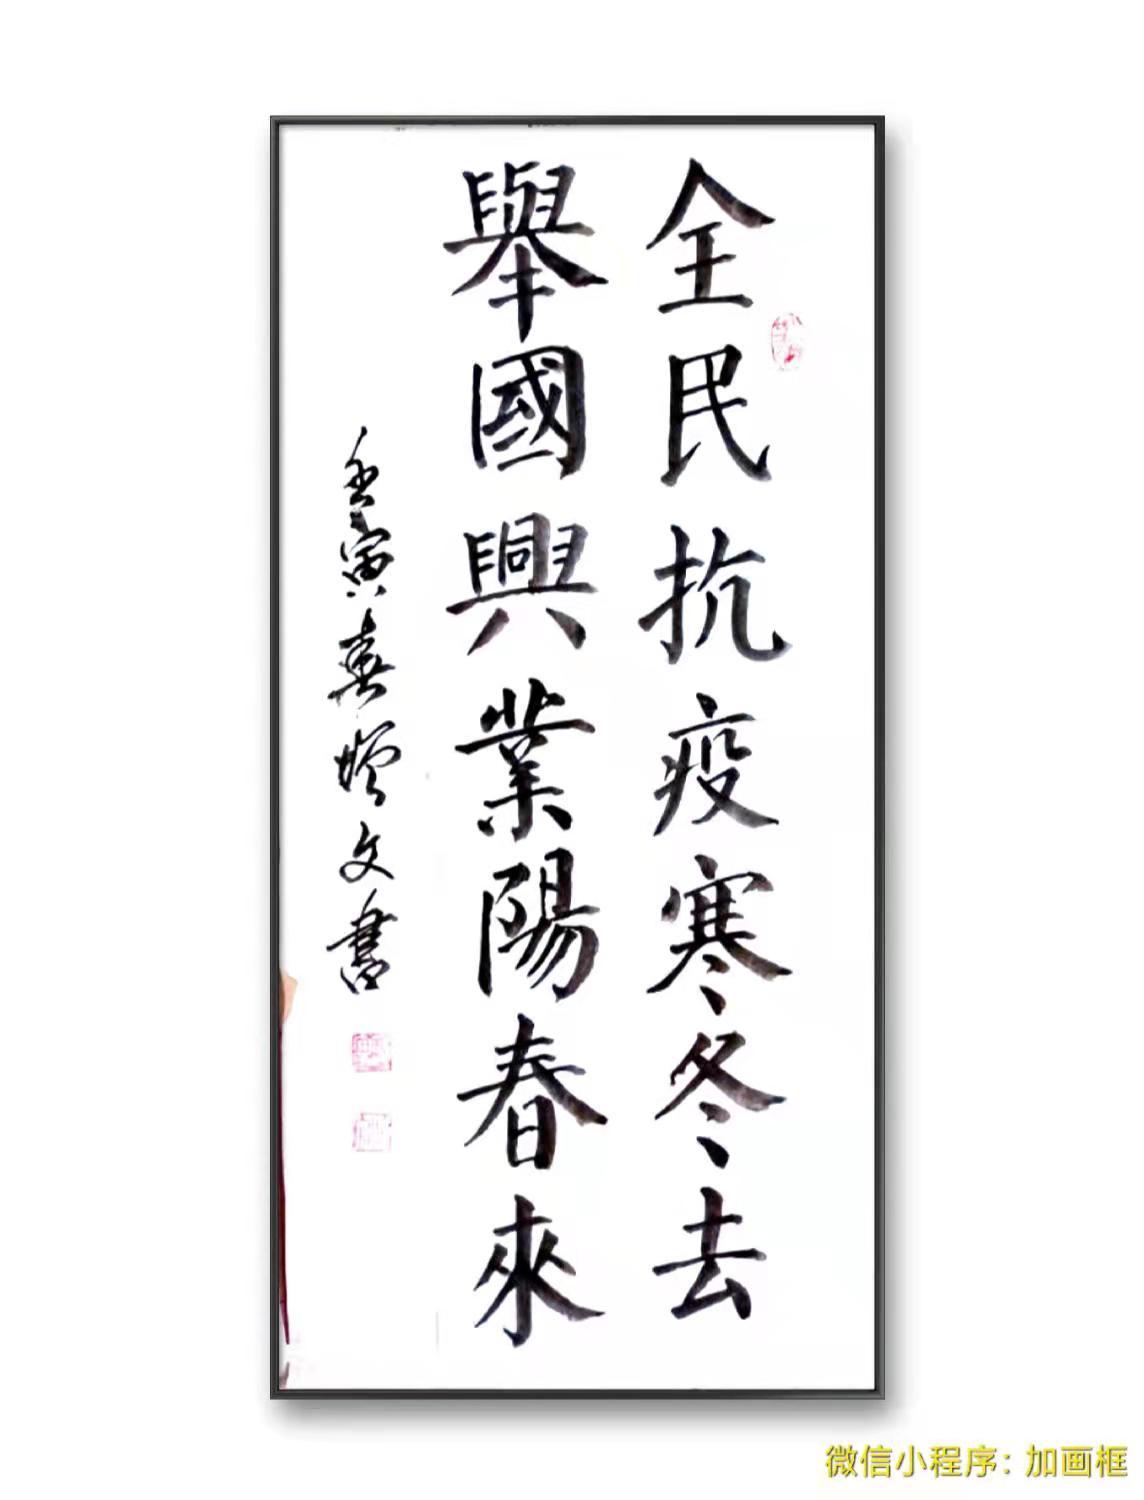 全民抗疫寒冬去
舉國興業陽春來
壬寅春 文書
微信小程序：加画框